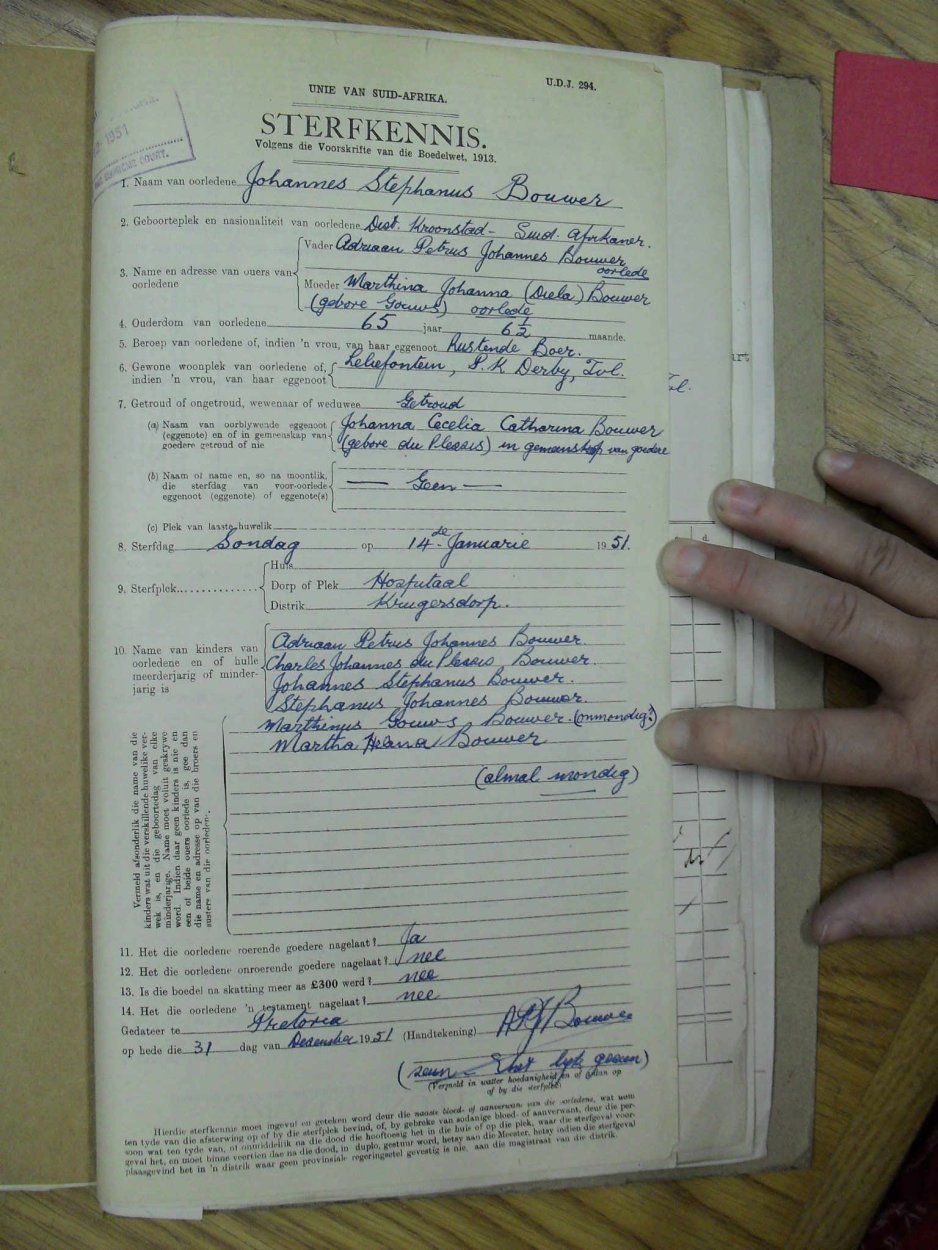 U.D.J. 294.
UNIE VAN SUID-AFRIKA.
STERFKENNIS.
Volgens die Voorskrifte van die Boedelwet, 1913.
1951
COURT.
1. Naam van oorledene Johannes Stephanus Bouwer
2. Geboorteplek en nasionaliteit van oorledene Dist. Kroonstad - Suid. Afrikaner.
3. Name en adresse van ouers van oorledene
Vader Adriaan Petrus Johannes Bouwer
oorlede
Moeder Marthina Johanna (Diela) Bouwer
(gebore Gouws) oorlede
4. Ouderdom van oorledene 65 jaar 6½ maande.
5. Beroep van oorledene of, indien 'n vrou, van haar eggenoot Rustende Boer.
6. Gewone woonplek van oorledene of, Leliefontein, P.K Derby, Tvl.
indien 'n vrou, van haar eggenoot
7. Getroud of ongetroud, wewenaar of weduwee Getroud
(a) Naam van oorblywende eggenoot Johanna Cecelia Catharina Bouwer
(eggenote) en of in gemeenskap van (gebore du Plessis) in gemeenskap van goedere
goedere getroud of nie
(b) Naam of name en, so na moontlik,
die sterfdag van voor-oorlede — Geen —
eggenoot (eggenote) of eggenote(s)
(c) Plek van laaste huwelik
8. Sterfdag Sondag op 14de Januarie 1951.
9. Sterfplek
Huis
Dorp of Plek Hospitaal
Distrik Krugersdorp.
10. Name van kinders van oorledene en of hulle meerderjarig of minderjarig is
Adriaan Petrus Johannes Bouwer.
Charles Johannes du Plessis Bouwer.
Johannes Stephanus Bouwer.
Stephanus Johannes Bouwer
Marthinus Gouws Bouwer. (onmondig?)
Martha Helena Bouwer
(almal mondig)
Vermeld afsonderlik die name van die
kinders wat uit die verskillende huwelike ver-
wek is, en die geboortedag van elke
minderjarige. Name moet voluit geskrywe
word. Indien daar geen kinders is nie en
een of beide ouers oorlede is, gee dan
die name en adresse op van die broers en
susters van die oorledene.
11. Het die oorledene roerende goedere nagelaat? Ja
12. Het die oorledene onroerende goedere nagelaat? nee
13. Is die boedel na skatting meer as £300 werd? nee
14. Het die oorledene 'n testament nagelaat? nee
Gedateer te Pretoria
op hede die 31 dag van Desember 1951 (Handtekening) APJ Bouwer
(seun
(Vermeld in watter hoedanigheid en of aan op
of by die sterfplek)
Hierdie sterfkennis moet ingevul en geteken word deur die naaste bloed- of aanverwant van die oorledene, wat
ten tyde van die afsterwing op of by die sterfplek bevind, of, by gebreke van sodanige bloed- of aanverwant, deur die per-
soon wat ten tyde van, of onmiddelik na die dood die hooftoesig het in die huis of op die plek, waar die sterfgeval voor-
geval het, en moet binne veertien dae na die dood, in duplo, gestuur word, hetsy aan die Meester, hetsy indien die sterfgeval
plaasgevind het in 'n distrik waar geen provinsiale regeringsetel gevestig is nie, aan die magistraat van die distrik.